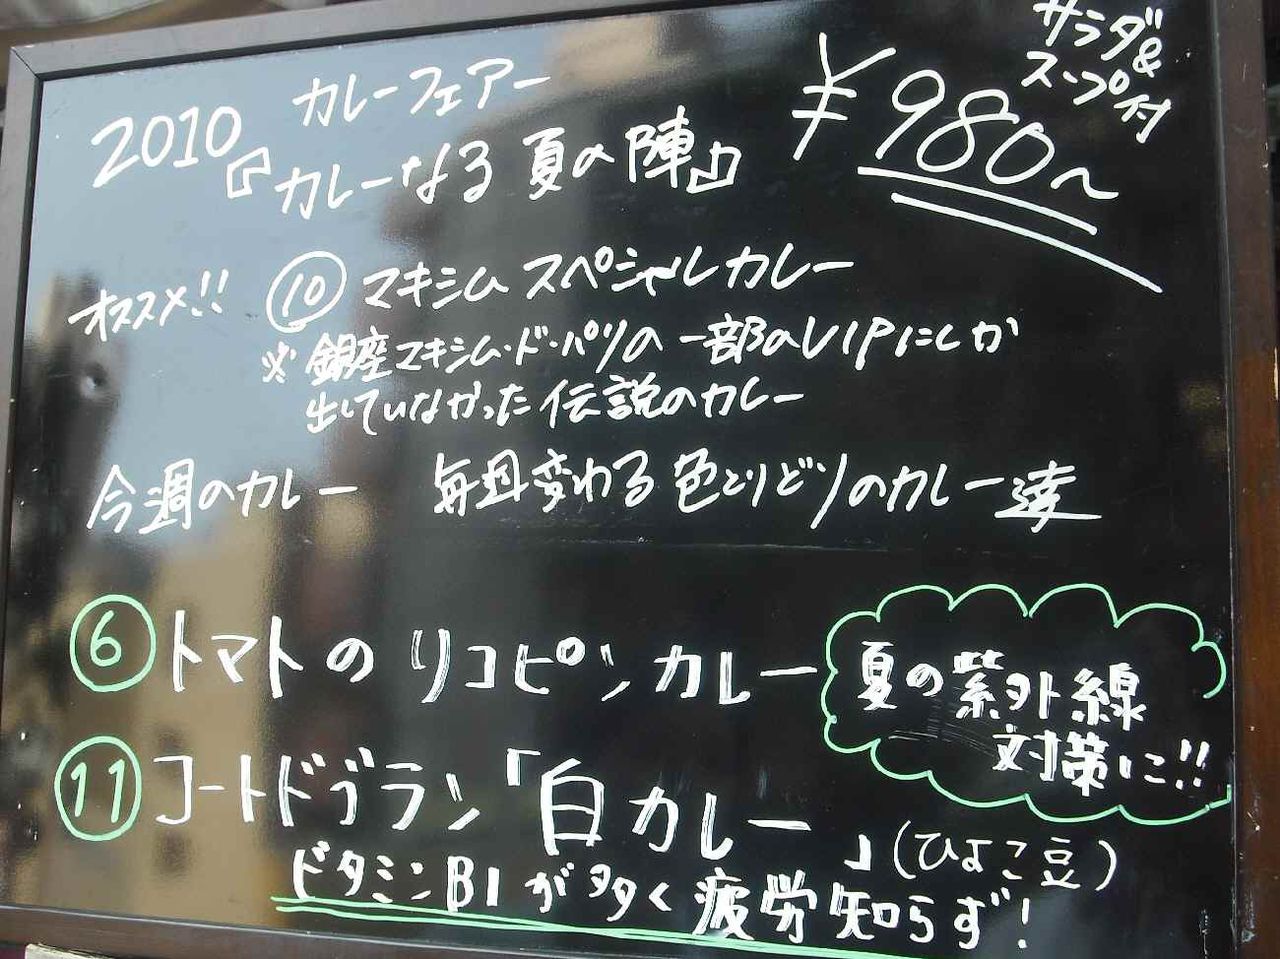 サラダ&
スープ付
2010 カレーフェアー
『カレーなる 夏の陣』
¥980〜
オススメ!! ⑩ マキシム スペシャルカレー
※ 銀座マキシム・ド・パリの 一部のVIPにしか
出していなかった 伝説のカレー
今週のカレー 毎週変わる 色とりどりのカレー達
⑥ トマトの リコピン カレー
夏の紫外線
対策に!!
⑪ コートドブラン「白カレー」(ひよこ豆)
ビタミンB1が多く疲労知らず!